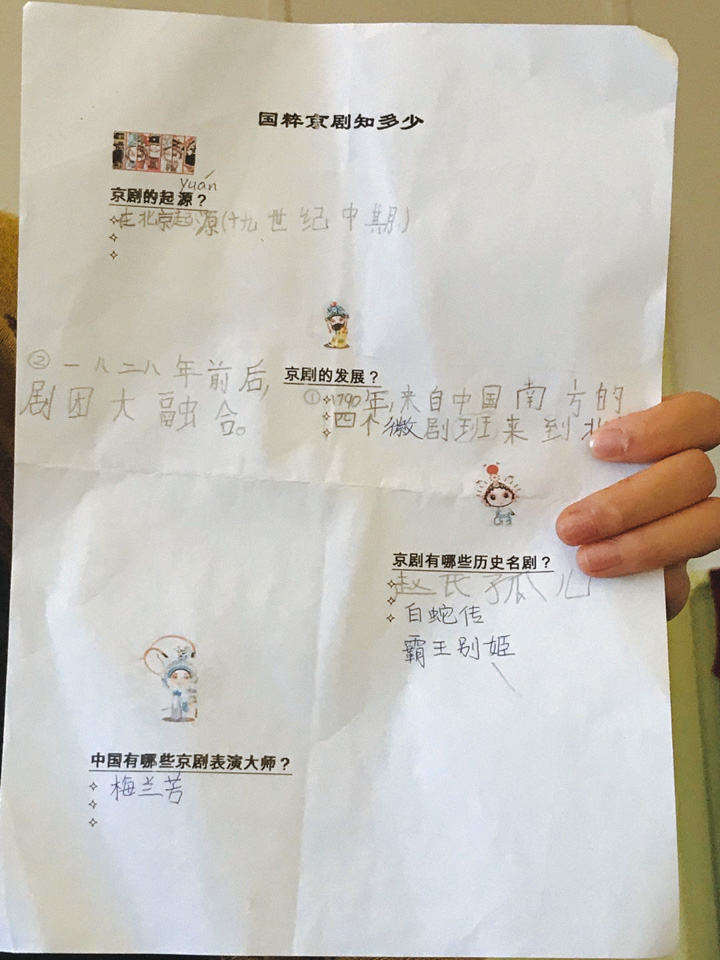 国粹京剧知多少
yuán
京剧的起源？
在北京起源(十九世纪中期)
京剧的发展？
①1790年,来自中国南方的
四个微剧班来到北
②一八二八年前后,
剧团大融合。
京剧有哪些历史名剧？
赵氏孤儿
白蛇传
霸王别姬
中国有哪些京剧表演大师？
梅兰芳